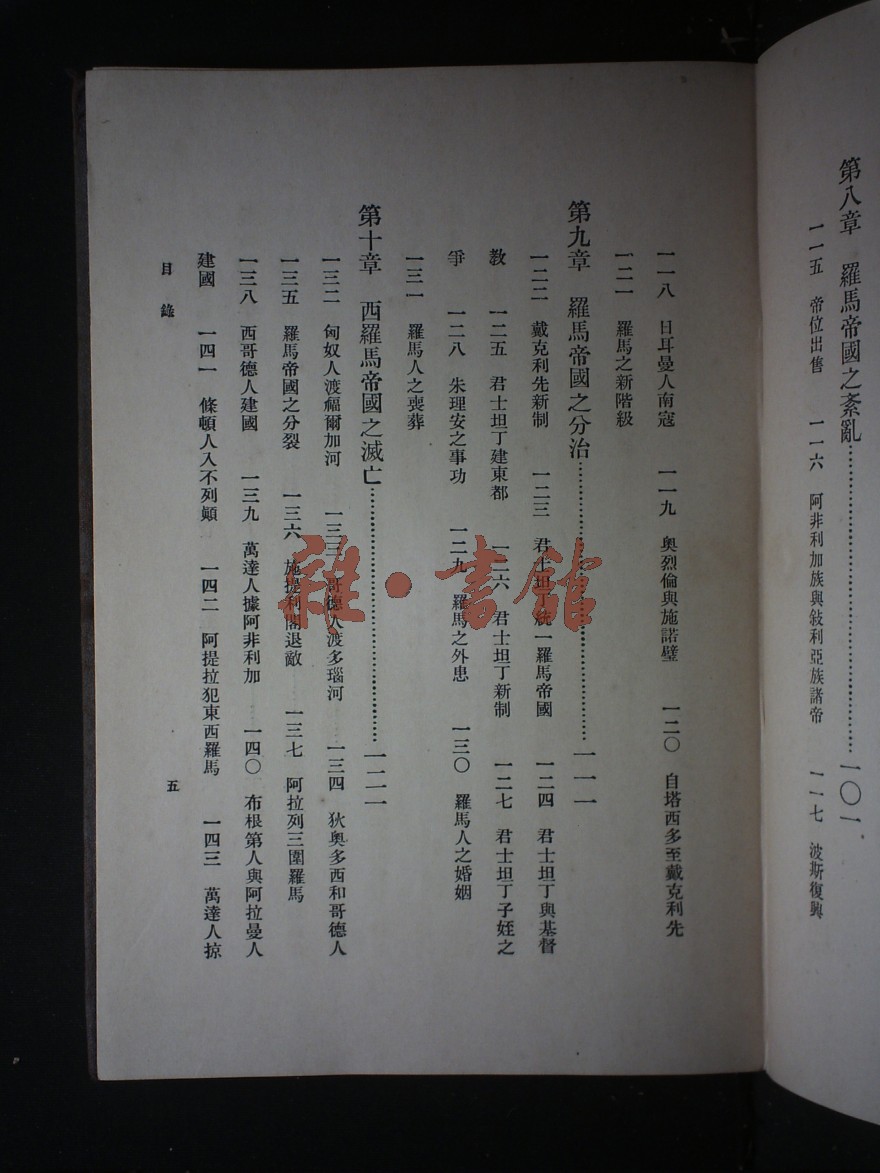 第八章　羅馬帝國之紊亂……一〇一
一一五　帝位出售　一一六　阿非利加族與敍利亞族諸帝　一一七　波斯復興
一一八　日耳曼人南寇　一一九　奧烈倫與施諾璧　一二〇　自塔西多至戴克利先
一二一　羅馬之新階級
第九章　羅馬帝國之分治……一一一
一二二　戴克利先新制　一二三　君士坦丁統一羅馬帝國　一二四　君士坦丁與基督
教　一二五　君士坦丁建東都　一二六　君士坦丁新制　一二七　君士坦丁子姪之
爭　一二八　朱理安之事功　一二九　羅馬之外患　一三〇　羅馬人之婚姻
一三一　羅馬人之喪葬
第十章　西羅馬帝國之滅亡……一二一
一三二　匈奴人渡幅爾加河　一三三　哥德人渡多瑙河　一三四　狄奧多西和哥德人
一三五　羅馬帝國之分裂　一三六　施提利閣退敵　一三七　阿拉列三圍羅馬
一三八　西哥德人建國　一三九　萬達人據阿非利加　一四〇　布根第人與阿拉曼人
建國　一四一　條頓人入不列顚　一四二　阿提拉犯東西羅馬　一四三　萬達人掠
目錄
五
雜·書館